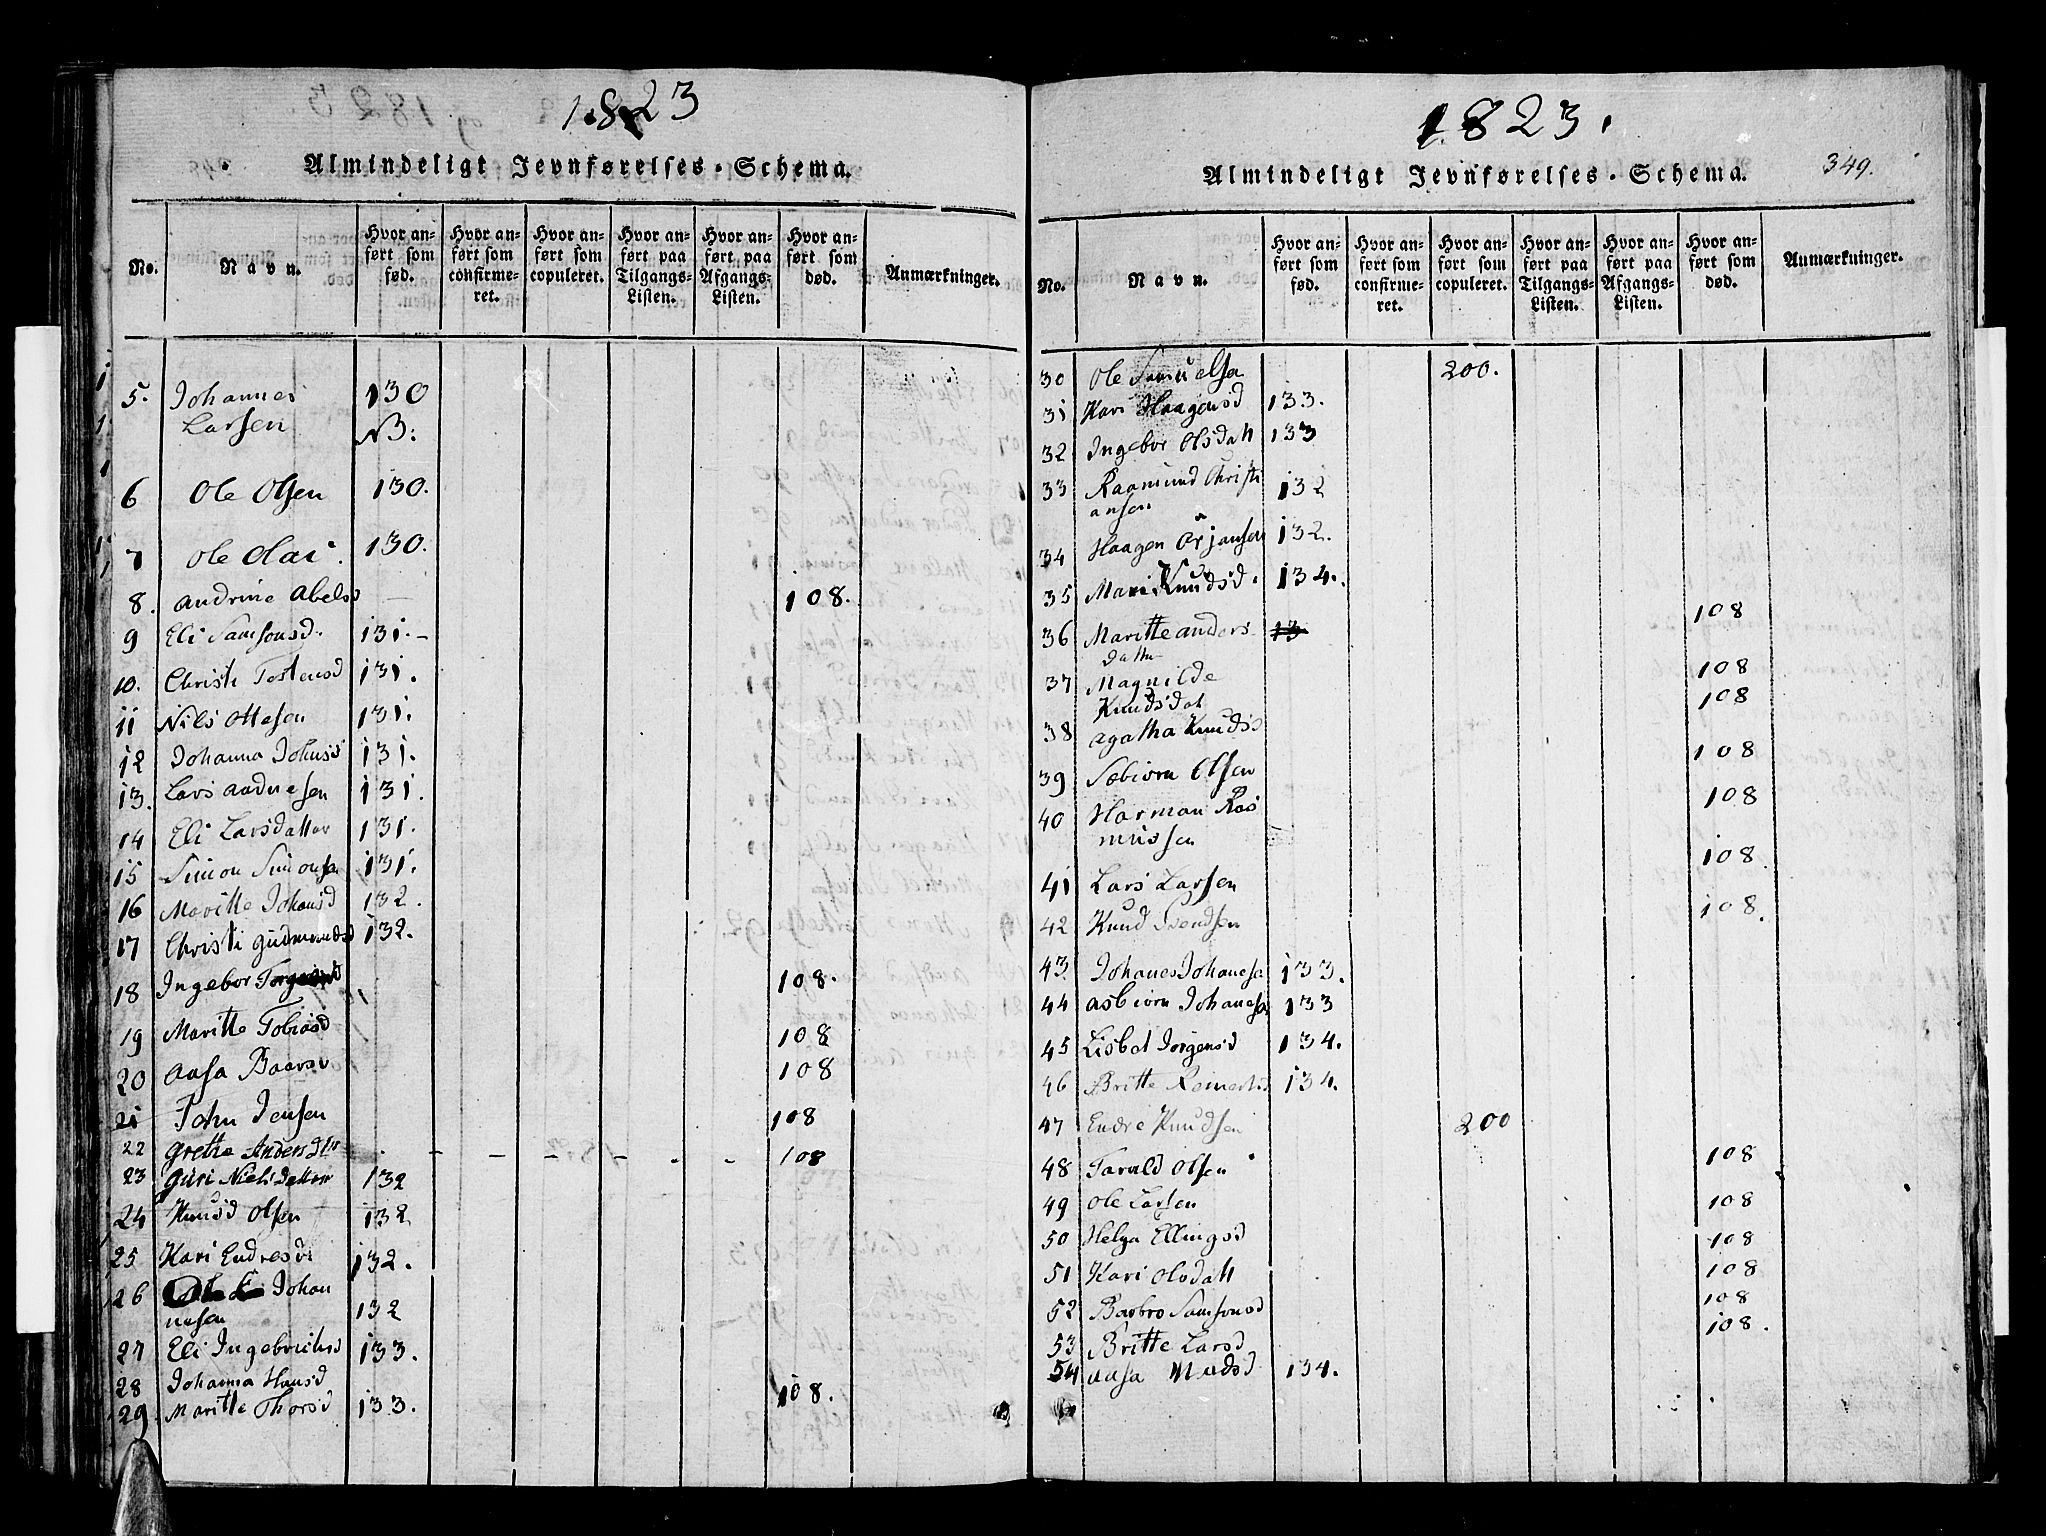 1823
Almindeligt Jevnførelses-Schema.
No. Navn. Hvor anført som fød. Hvor anført som confirmeret. Hvor anført som copuleret. Hvor anført paa Tilgangs-Listen. Hvor anført paa Afgangs-Listen. Hvor anført som død. Anmærkninger.
5. Johannes 130
Larsen NB:
6 Ole Olsen 130.
7 Ole Olai. 130.
8. Andrine Abelsd 108.
9 Eli Samsonsd. 131.
10. Christi Tostensd 131.
11 Nils Ottesen 131.
12 Johanna Johnsd 131.
13. Lars Aadnesen 131.
14 Eli Larsdatter 131.
15 Simon Simonsen 131.
16 Maritte Johansd 132.
17 Christi Gudmundsd 132.
18 Ingebor 108.
19 Maritte Tobiasd 108
20 Aasa Baarsd 108
21 John Jensen 108
22 Grethe Andersdtr 108
23 Guri Nielsdatter 132
24 Knud Olsen 132
25 Kari Endresd 132.
26 Johan
nesen 132
27 Eli Ingebrichtsd 133.
28 Johanna Hansd 108.
29. Maritte Thorsd 133.
1823.
Almindeligt Jevnførelses-Schema. 349.
No. Navn. Hvor anført som fød. Hvor anført som confirmeret. Hvor anført som copuleret. Hvor anført paa Tilgangs-Listen. Hvor anført paa Afgangs-Listen. Hvor anført som død. Anmærkninger.
30 Ole Samuelsen 200.
31 Kari Haagensd 133.
32 Ingebor Olsdatt 133
33 Raamund Christi 132
ansen
34 Haagen Ørjansen 132.
35 Mari Knudsd. 134.
36 Maritte Anders 13 108
datter
37 Magnilde 108
Knudsdat
38 Agatha Knudsd 108
39 Sebiorn Olsen 108
40 Harman Ras 108
mussen
41 Lars Larsen 108
42 Knud Svendsen 108.
43 Johanes Johanesen 133.
44 Asbiorn Johanesen 133
45 Lisbet Jørgensd 134.
46 Britte Reinertsd 134.
47 Endre Knudsen 200
48 Tarald Olsen 108
49 Ole Larsen 108
50 Helga Ellingsd 108
51 Kari Olsdatt 108
52 Barbro Samsonsd 108
53 Britte Larsd 108.
54 Aasa Madsd 134.